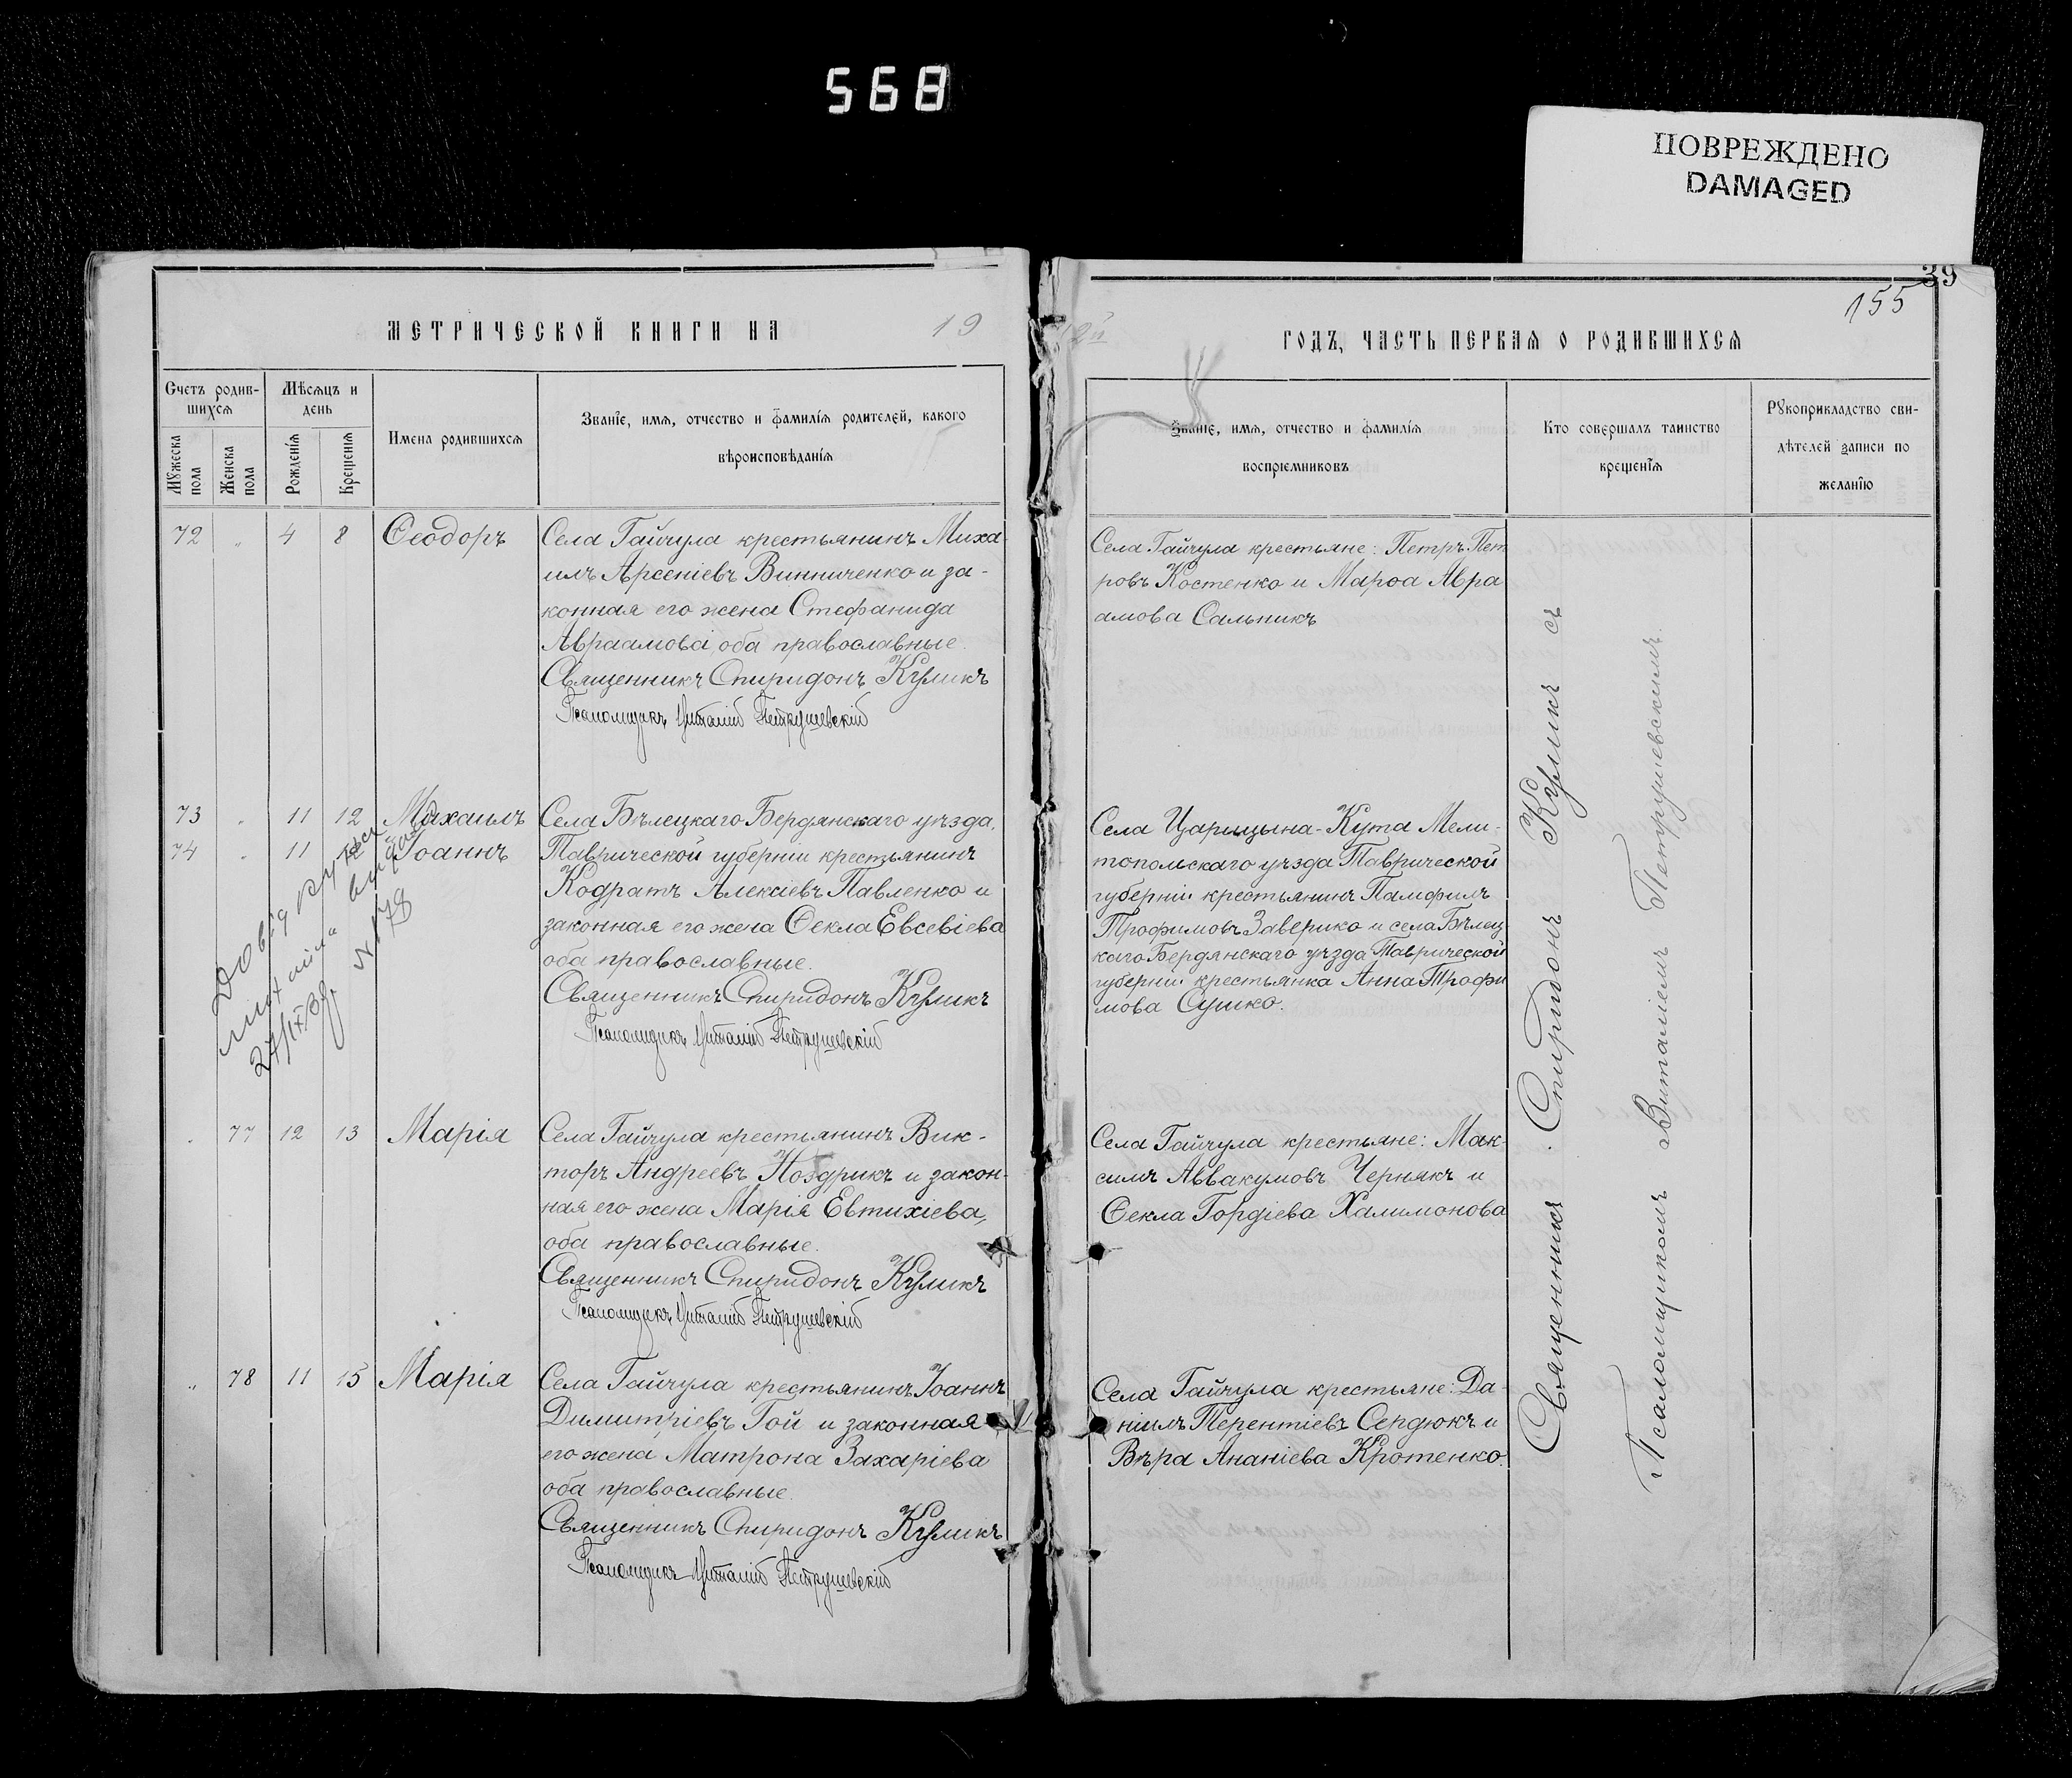 568
ПОВРЕЖДЕНО
DAMAGED
39
155
МЕТРИЧЕСКОЙ КНИГИ НА 19
Счетъ родив-
шихся
Мѣсяцъ и
день
Имена родившихся
Званіе, имя, отчество и фамилія родителей, какого
вѣроисповѣданія
Мужеска
пола
Женска
пола
Рожденія
Крещенія
72 " 4 8 Ѳеодоръ
Села Гайчула крестьянинъ Миха-
илъ Арсеніевъ Винниченко и за-
конная его жена Стефанида
Авраамова оба православные.
Священникъ Спиридонъ Куликъ
Псаломщикъ Виталій Петрушевскій
73 " 11 12 Михаилъ
74 " 11 12 Іоаннъ
Села Бѣлецкаго Бердянскаго уѣзда,
Таврической губерніи крестьянинъ
Кодратъ Алексіевъ Павленко и
законная его жена Ѳекла Евсевіева
оба православные.
Священникъ Спиридонъ Куликъ
Псаломщикъ Виталій Петрушевскій
27/IX 39 г. N 178
" 77 12 13 Марія
Села Гайчула крестьянинъ Вик-
торъ Андреевъ Ноздрикъ и закон-
ная его жена Марія Евтихіева,
оба православные.
Священникъ Спиридонъ Куликъ
Псаломщикъ Виталій Петрушевскій
" 78 11 15 Марія
Села Гайчула крестьянинъ Іоаннъ
Димитріевъ Гой и законная
его жена Матрона Захаріева
оба православные.
Священникъ Спиридонъ Куликъ
Псаломщикъ Виталій Петрушевскій
ГОДЪ, ЧАСТЬ ПЕРВАЯ О РОДИВШИХСЯ
Званіе, имя, отчество и фамилія
воспріемниковъ
Кто совершалъ таинство
крещенія
Рукоприкладство сви-
дѣтелей записи по
желанію
Села Гайчула крестьяне: Петръ Пет
ровъ Костенко и Марѳа Авра
амова Сальникъ
Села Царицына-Кута Мели-
топольскаго уѣзда Таврической
губерніи крестьянинъ Памфилъ
Трофимовъ Заверико и села Бѣлец
каго Бердянскаго уѣзда Таврической
губерніи крестьянка Анна Трофи
мова Сушко.
Села Гайчула крестьяне: Мак-
симъ Аввакумовъ Чернякъ и
Ѳекла Гордіева Халимонова
Села Гайчула крестьяне: Да-
ніилъ Терентіевъ Сердюкъ и
Вѣра Ананіева Кротенко.
Священникъ Спиридонъ Куликъ съ
Псаломщикомъ Виталіемъ Петрушевскимъ.